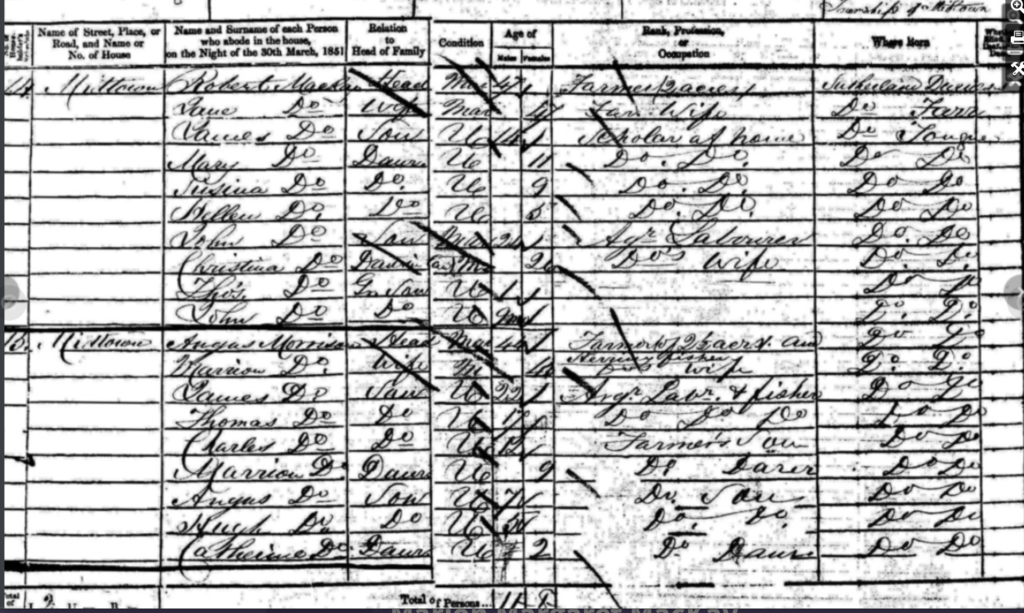 Township of Midtown
Name of Street, Place, or Road, and Name or No. of House
Name and Surname of each Person who abode in the house, on the Night of the 30th March, 1851
Relation to Head of Family
Condition
Age of
Males Females
Rank, Profession, or Occupation
Where Born
Midtown Robert Mackay Head Mar 47 Farmer 2 acres Sutherland
Jane Do Wife Mar 47 Farm. Wife Do Farr
James Do Son U 14 Scholar at home Do Tongue
Mary Do Daur U 11 Do. Do. Do Do
Do Do. U 9 Do. Do Do Do
Hellen Do. Do U 5 Do. Do. Do Do
John Do Son Mar 24 Agr. Labourer Do. Do
Christina Do Daur in Law Mar 20 Do's Wife Do. Do.
Thos. Do Gr Son U 1 Do Do
John Do Do U Do. Do.
15. Midtown Angus Morrison Head Mar Farmer of 2 acres and Do Do
Herring fisher
Marrion Do. Wife M Do's Wife Do. Do.
James Do Son U 22 Agr. Labr. & fisher Do Do
Thomas Do Do U 17 Do Do Do Do Do
Charles Do Do U 12 Farmers Son Do Do
Marrion Do. Daur U 9 Do Daur Do Do
Angus Do Son U 7 Do. Son Do Do
Hugh Do. Do U Do. Do. Do Do
Catherine Do Daur U 2 Do Daur Do Do
Total of Persons... 11 8